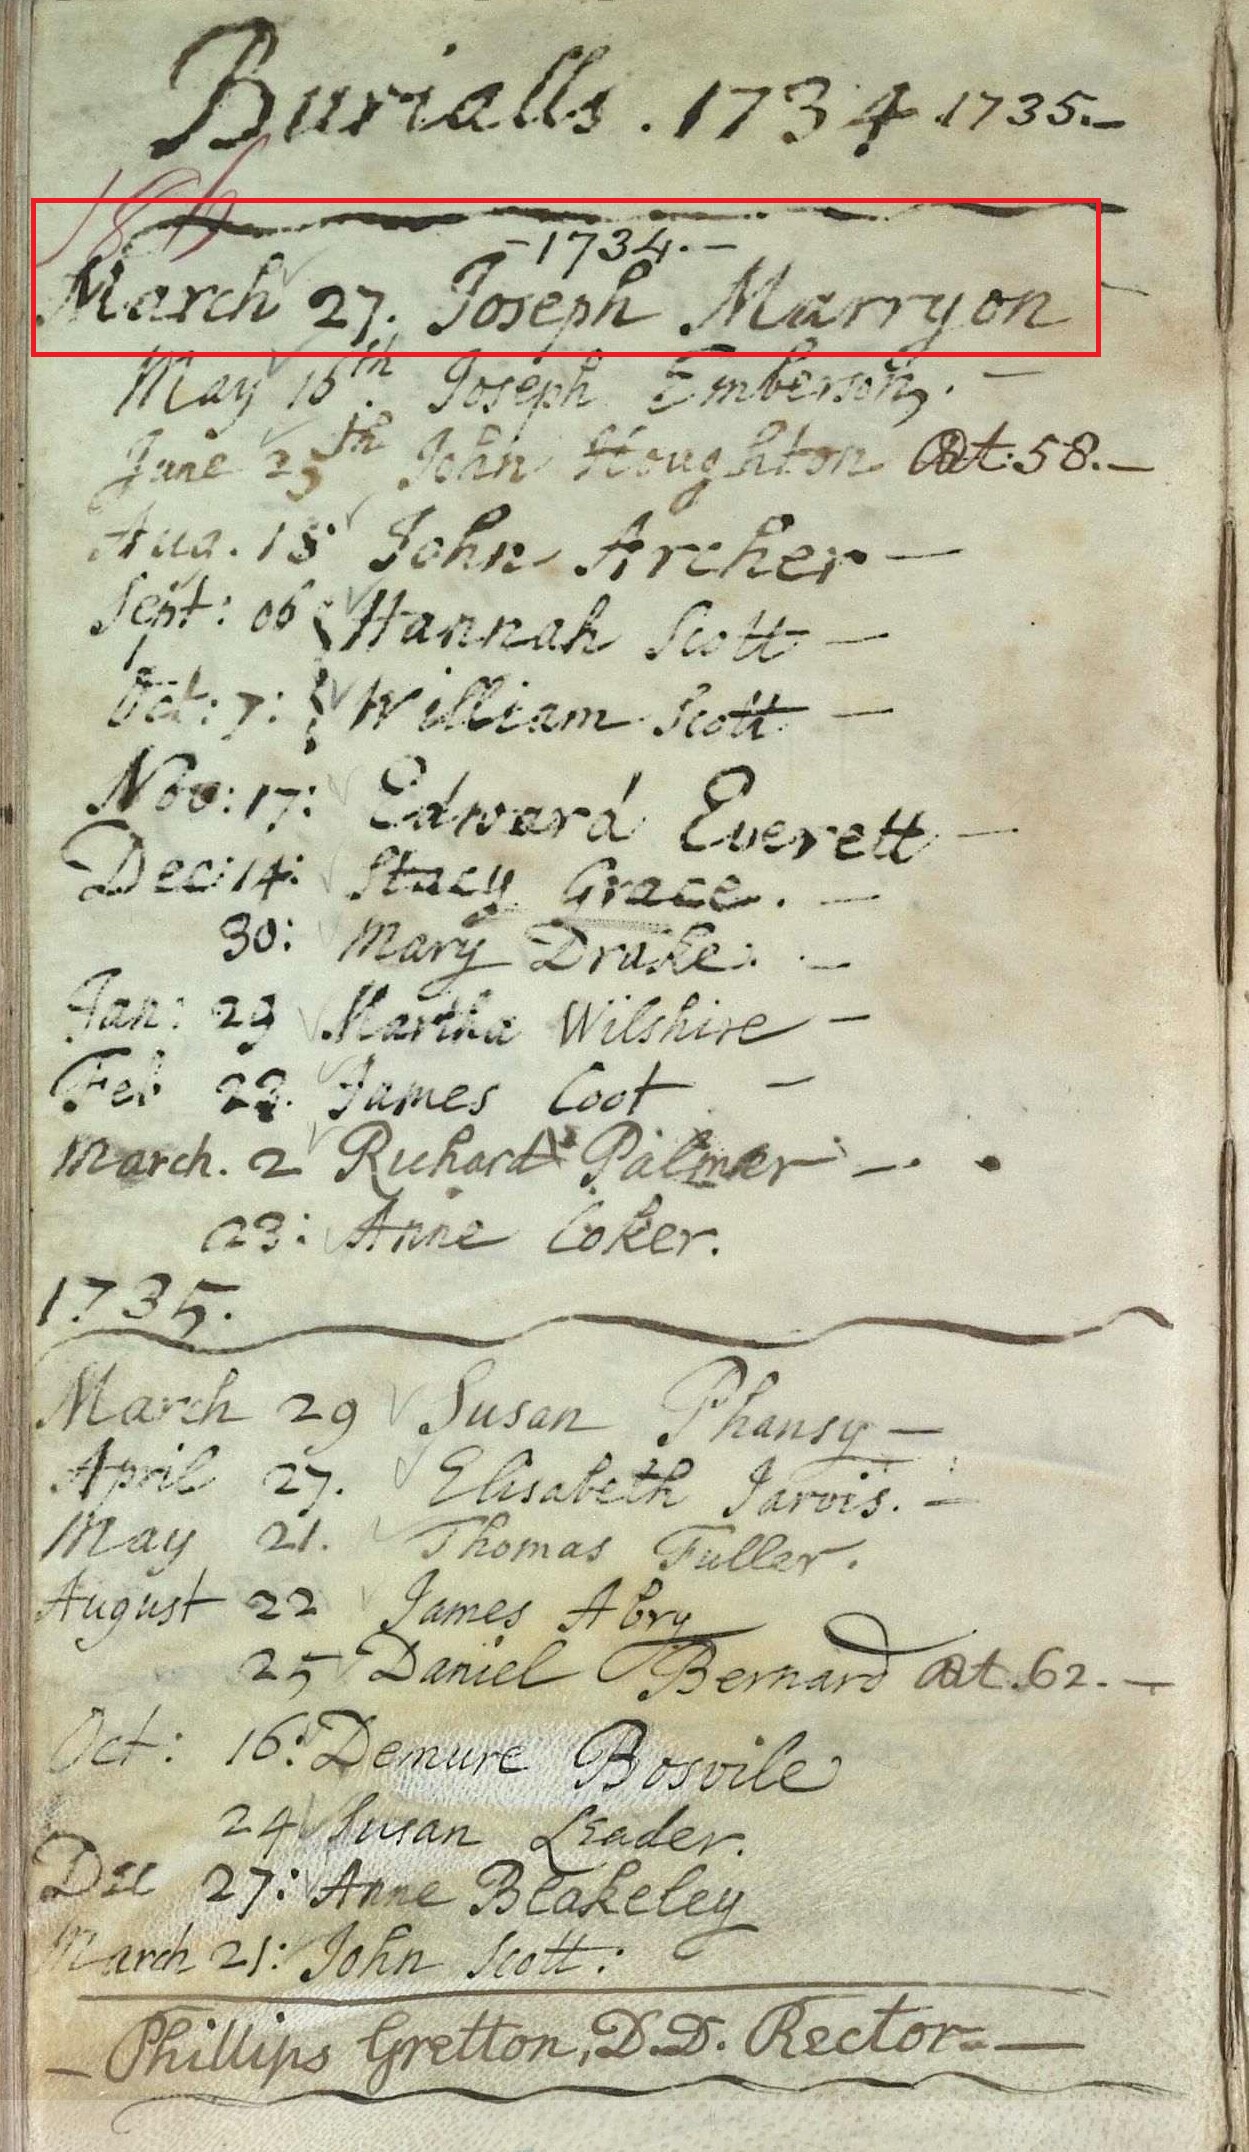 Burialls . 1734 . 1735. —
- 1734. -
March 27. Joseph Marryon
May 16th. Joseph Emberson, . —
June 25th John Houghton Æt. 58. —
Aug. 18 John Archer —
Sept: 06 { Hannah Scott —
Oct: 7: { William Scott —
Nov: 17: Edward Everett —
Dec: 14: Stacy Grace. —
30: Mary Drake. . —
Jan: 29 Martha Wilshire —
Feb 23. James Coot —
March. 2 Richard Palmer — .
23: Anne Coker.
1735.
March 29 Susan Phansy —
April 27. Elisabeth Jarvis. —
May 21. Thomas Fuller.
August 22 James Abry
25 Daniel Bernard Æt. 62. —
Oct: 16: Demure Bosvile
24 Susan Leader.
Dec 27: Anne Blakeley
March 21: John Scott:
— Phillips Gretton, D.D. Rector. —